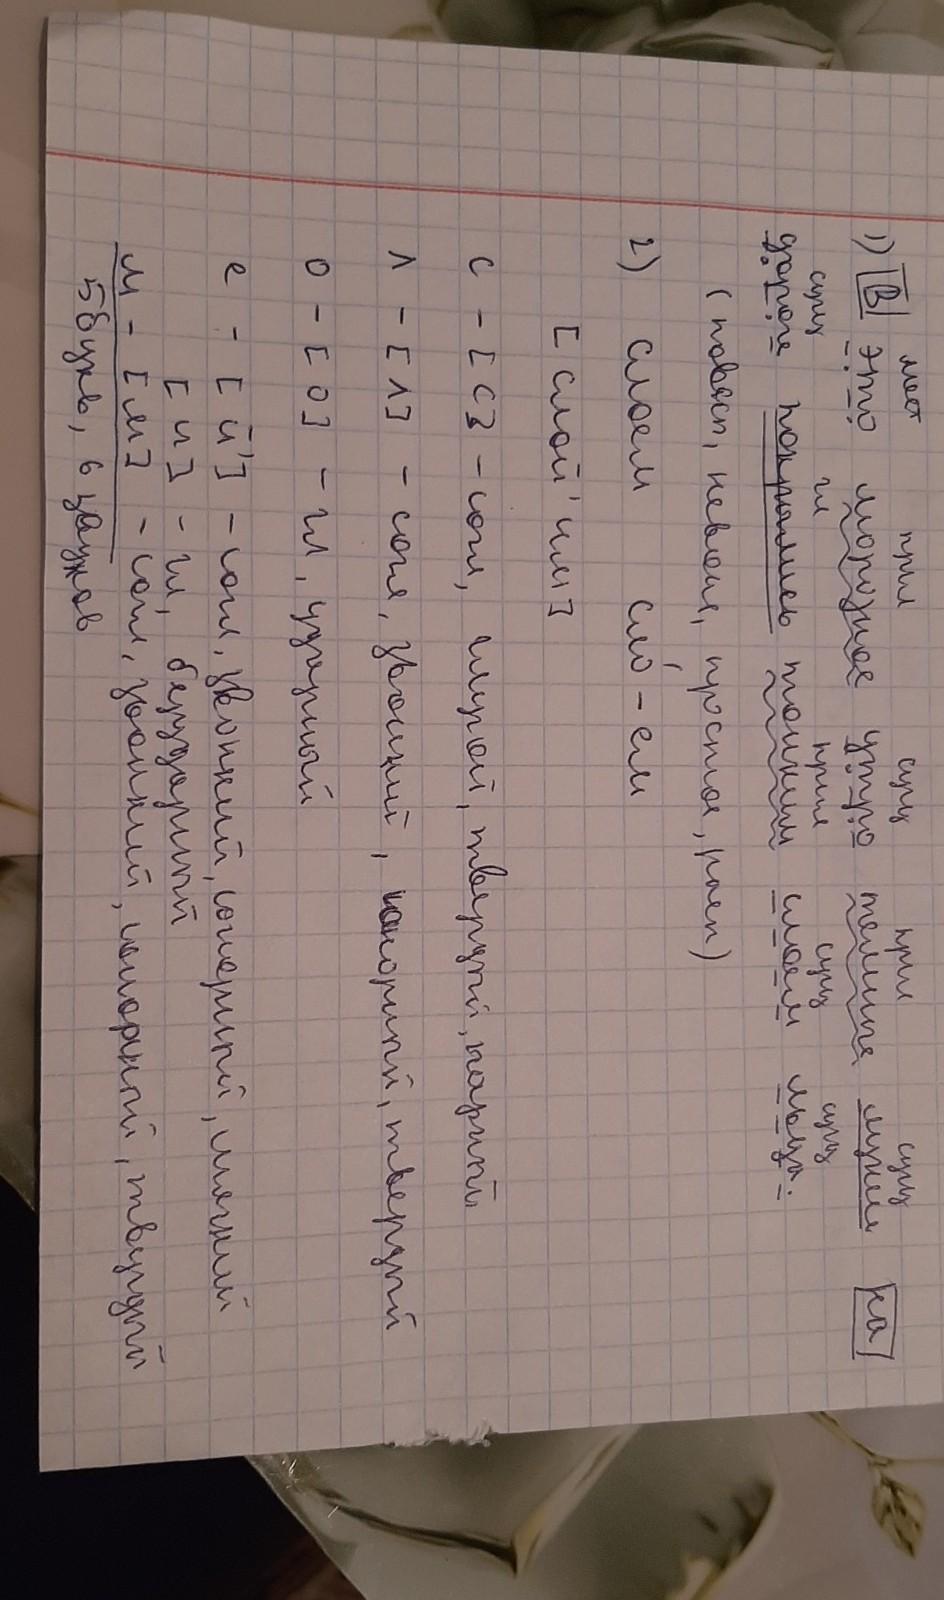 мест прил сущ прил сущ
1) В это морозное утро тёмные лужи на
сущ гл прил сущ сущ
дороге покрылись тонким слоем льда.
(повест, невоскл, простое, расп)
2) слоем сло́-ем
[слой'им]
с - [с] - согл, глухой, твердый, парный
л - [л] - согл, звонкий, сонорный, твердый
о - [о] - гл, ударный
е - [й'] - согл, звонкий, сонорный, мягкий
[и] - гл, безударный
м - [м] - согл, звонкий, сонорный, твердый
5 букв, 6 звуков